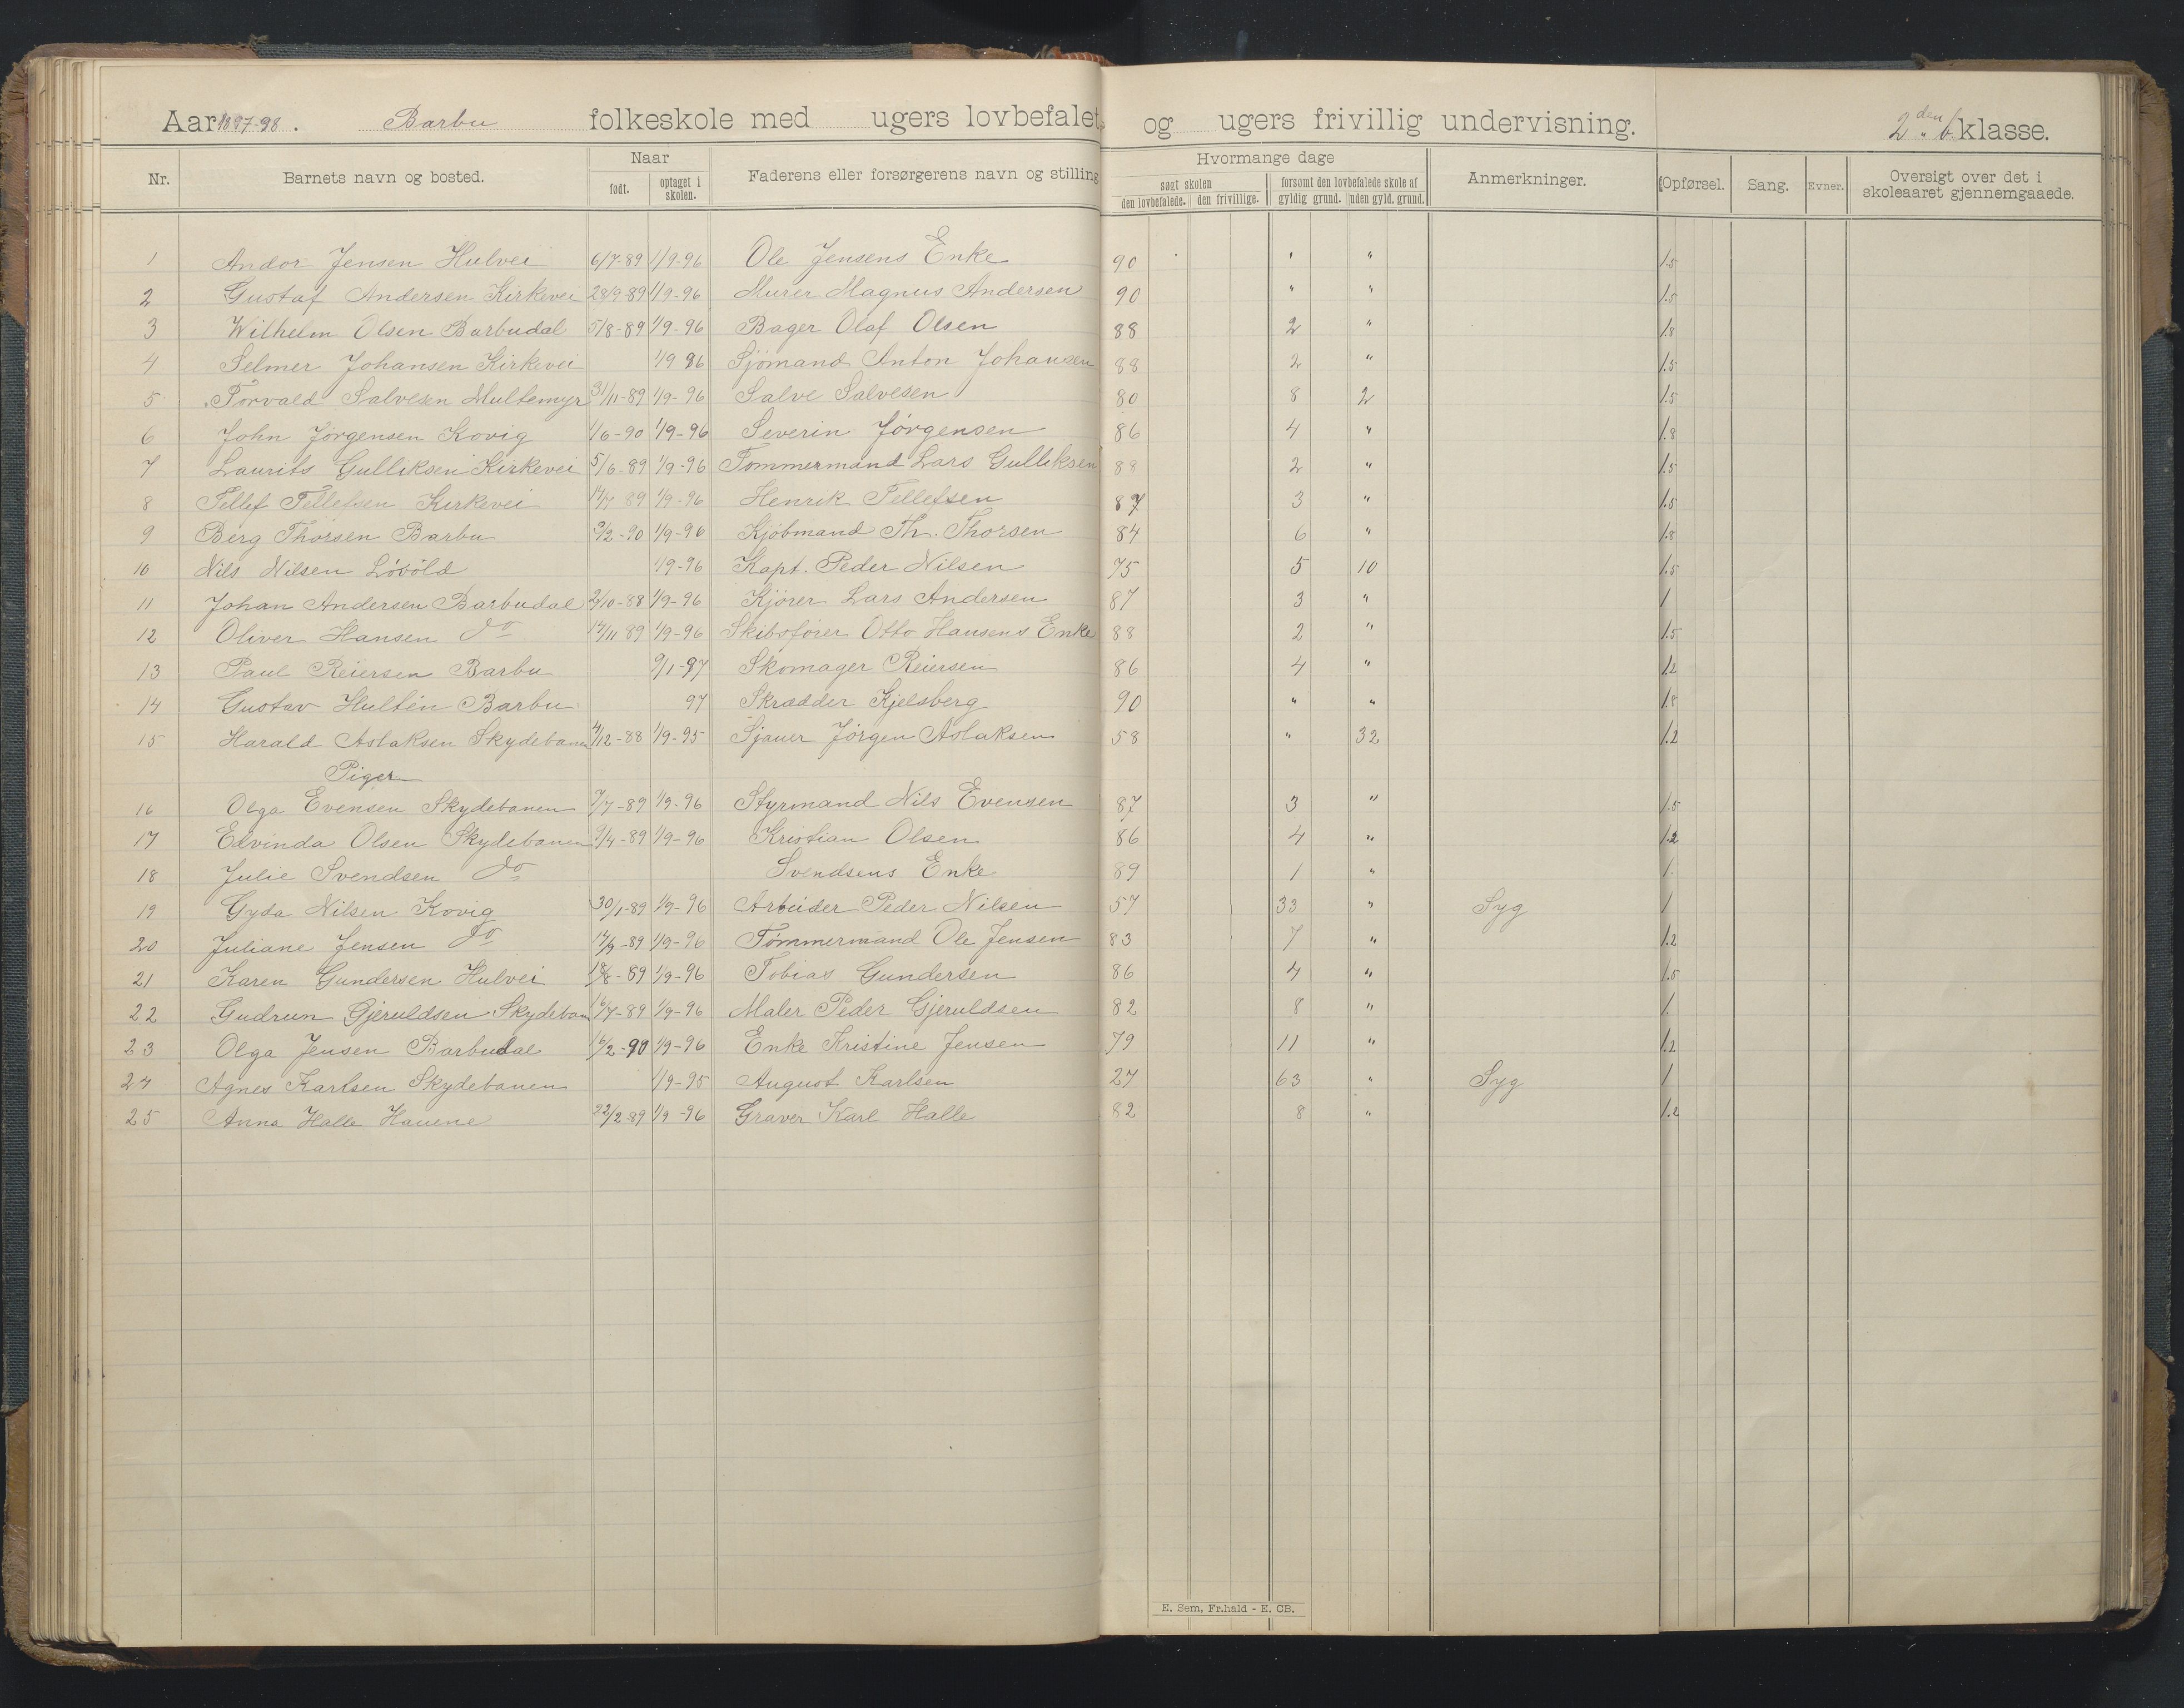 Aar 1897-98. Barbu folkeskole med ugers lovbefalet og ugers frivillig undervisning. 2den b. klasse.
Nr. Barnets navn og bosted. Naar født. optaget i skolen. Faderens eller forsørgerens navn og stilling Hvormange dage søgt skolen den lovbefalede. den frivillige. forsømt den lovbefalede skole af gyldig grund. uden gyld. grund. Anmerkninger. Opførsel. Sang. Evner. Oversigt over det i skoleaaret gjennemgaaede.
1 Andor Jensen Hulvei 6/7-89 1/9-96 Ole Jensens Enke 90 " " 1.5
2 Gustaf Andersen Kirkevei 28/9-89 1/9-96 Murer Magnus Andersen 90 " " 1.5
3 Wilhelm Olsen Barbudal 5/8-89 1/9-96 Bager Olaf Olsen 88 2 " 1.8
4 Selmer Johansen Kirkevei 1/9 96 Sjømand Anton Johansen 88 2 " 1.5
5 Torvald Salvesen Multemyr 31/11-89 1/9-96 Salve Salvesen 80 8 2 1.5
6 John Jørgensen Kovig 1/6-90 1/9-96 Severin Jørgensen 86 4 " 1.8
7 Laurits Gulliksen Kirkevei 5/6-89 1/9-96 Tømmermand Lars Gulliksen 88 2 " 1.5
8 Tellef Tellefsen Kirkevei 14/7 89 1/9-96 Henrik Tellefsen 87 3 " 1.5
9 Berg Thorsen Barbu 9/2-90 1/9-96 Kjøbmand Th. Thorsen 84 6 " 1.8
10 Nils Nilsen Løvold 1/9-96 Kapt. Peder Nilsen 75 5 10 1.5
11 Johan Andersen Barbudal 2/10-88 1/9-96 Kjører Lars Andersen 87 3 " 1
12 Oliver Hansen do 17/11 89 1/9-96 Skibsfører Otto Hansens Enke 88 2 " 1.5
13 Paul Reiersen Barbu 9/11-97 Skomager Reiersen 86 4 " 1.2
14 Gustav Hultén Barbu 97 Skrædder Kjelsberg 90 " " 1.8
15 Harald Aslaksen Skydebanen 4/12-88 1/9-95 Sjauer Jørgen Aslaksen 58 " 32 1.2
Piger
16 Olga Evensen Skydebanen 7/7-89 1/9-96 Styrmand Nils Evensen 87 3 " 1.5
17 Edvinda Olsen Skydebanen 9/4-89 1/9-96 Kristian Olsen 86 4 " 1.2
18 Julie Svendsen do Svendsens Enke 89 1 " 1.
19 Gyda Nilsen Kovig 30/1-89 1/9-96 Arbeider Peder Nilsen 57 33 " Syg 1
20 Juliane Jensen do 14/9-89 1/9-96 Tømmermand Ole Jensen 83 7 " 1.2
21 Karen Gundersen Hulvei 18/8-89 1/9-96 Tobias Gundersen 86 4 " 1.5
22 Gudrun Gjeruldsen Skydeban 16/7-89 1/9-96 Maler Peder Gjeruldsen 82 8 " 1.
23 Olga Jensen Barbudal 16/2-90 1/9-96 Enke Kristine Jensen 79 11 " 1.2
24 Agnes Karlsen Skydebanen 1/9-95 August Karlsen 27 63 " Syg 1
25 Anna Halle Havene 22/2-89 1/9-96 Graver Karl Halle 82 8 " 1.2
E. Sem, Fr.hald - E. CB.